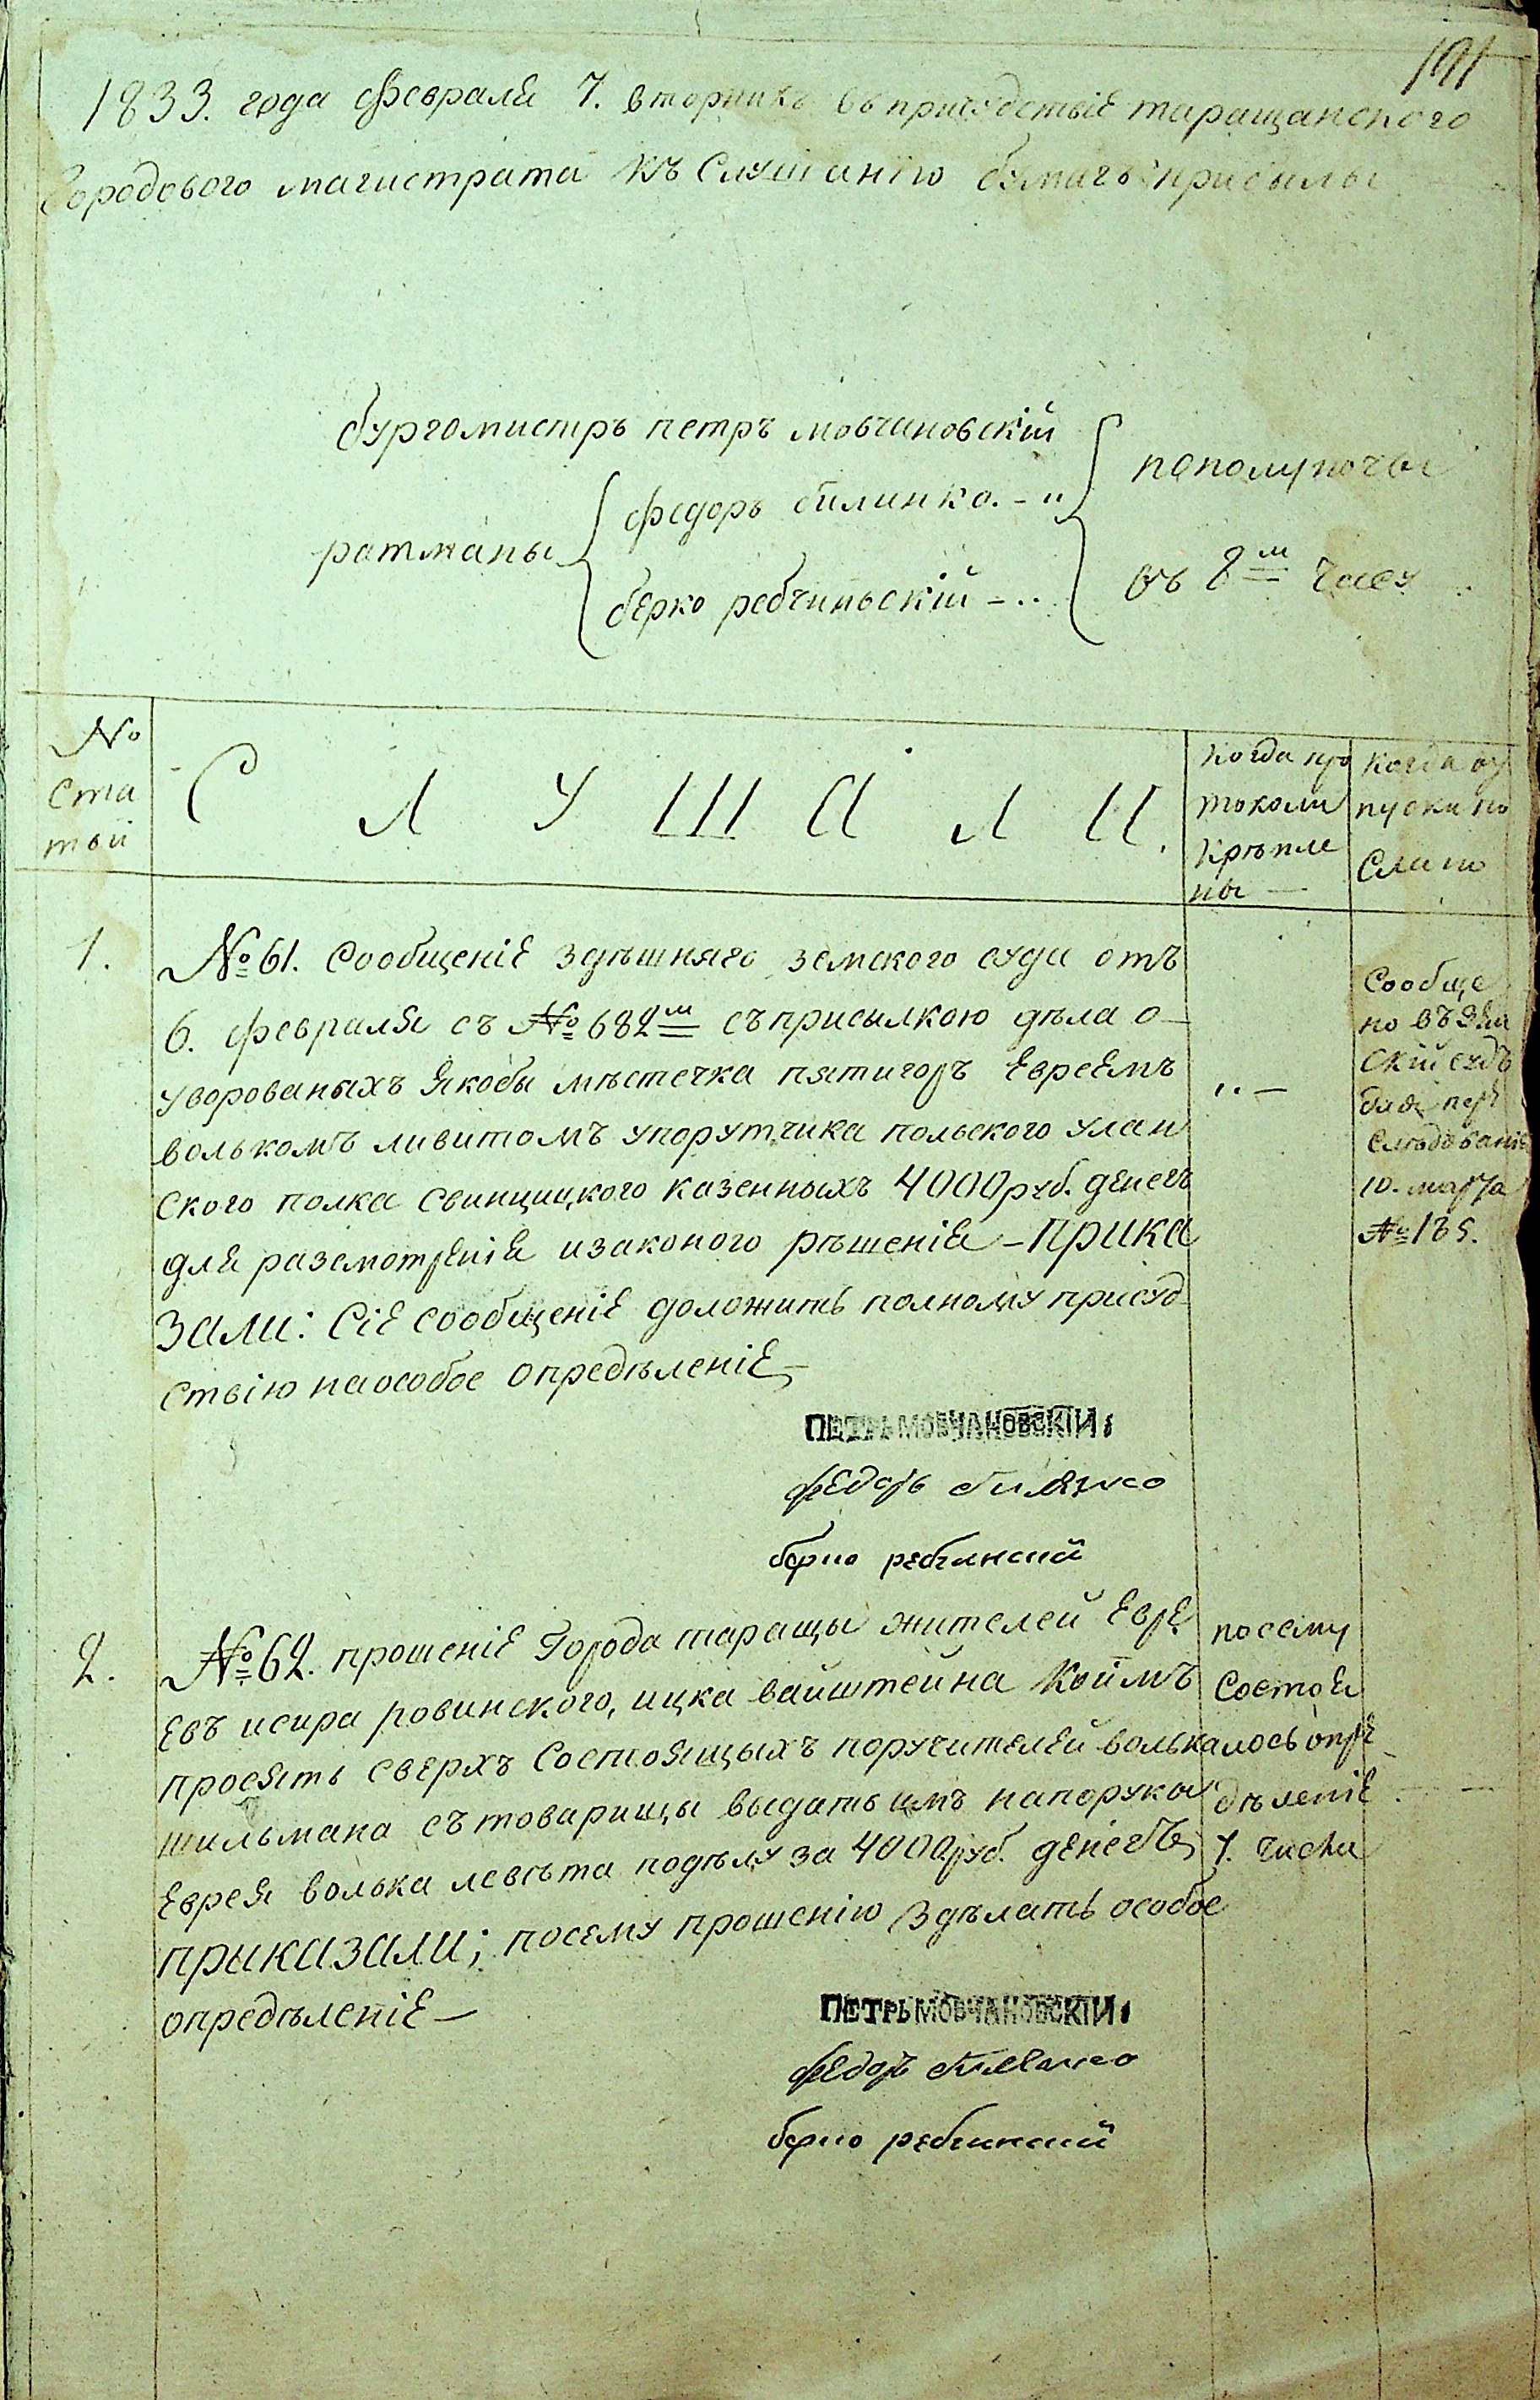 191
1833. года февраля 7. вторникъ въ присудствіе таращанского
Городового магистрата къ Слушанію бумагъ прибыли
бургомистръ петръ мовчановскій
ратманы
федоръ билинко. - "
берко ребчинскій - ..
пополуночы
въ 8м часу
№ Ста тьи
С Л У Ш А Л И.
Когда про
токолы
крѣпле
ны —
Когда от
пускано
1.
№ 61. Сообщеніе здѣшняго земского суда отъ
6. февраля съ № 682м съ присылкою дѣла о
уворованыхъ якобы мѣстечка пятигоръ Евреемъ
волькомъ ливитомъ упорутчика польского улан
ского полка свинцицкого казенныхъ 4000 руб. денегъ
для разсмотренія изаконого рѣшенія - прика
зали: Сіе сообщеніе доложить полному присуд
ствію наособое опредѣленіе —
.. —
Сообще
но въ Зем
скій судъ
для пере
слѣдованія
10. марта
№ 185.
ПЕТРЬ МОВЧАНОВСКІЙ
федоръ билинко
берко ребчинский
2.
№ 62. прошеніе Города таращы жителей Евре
евъ исира ровинского, ицка вайштейна коимъ
просять сверхъ Состоящыхъ поручителейволька
шильмана съ товарищы выдать имъ напоруки
Еврея волька левѣта подѣлу за 4000 руб. денегъ
приказали; посему прошенію здѣлать особое
опредѣленіе —
посему
Состоя
лось опре
дѣленіе
7. числа
ПЕТРЬ МОВЧАНОВСКІЙ
федоръ билинко
берко ребчинский